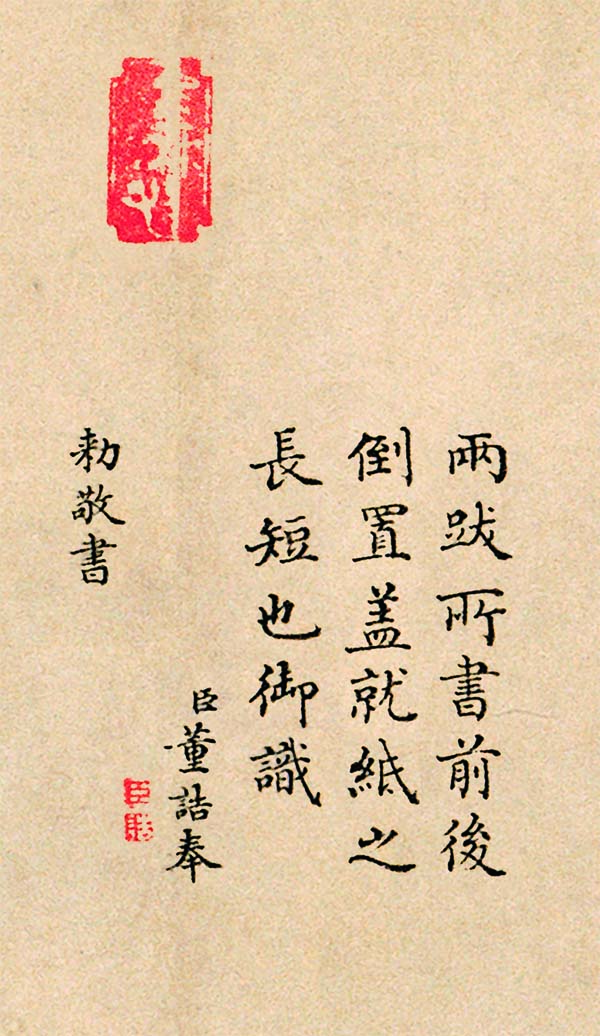 兩跋所書前後
倒置蓋就紙之
長短也御識
臣董誥奉
勅敬書